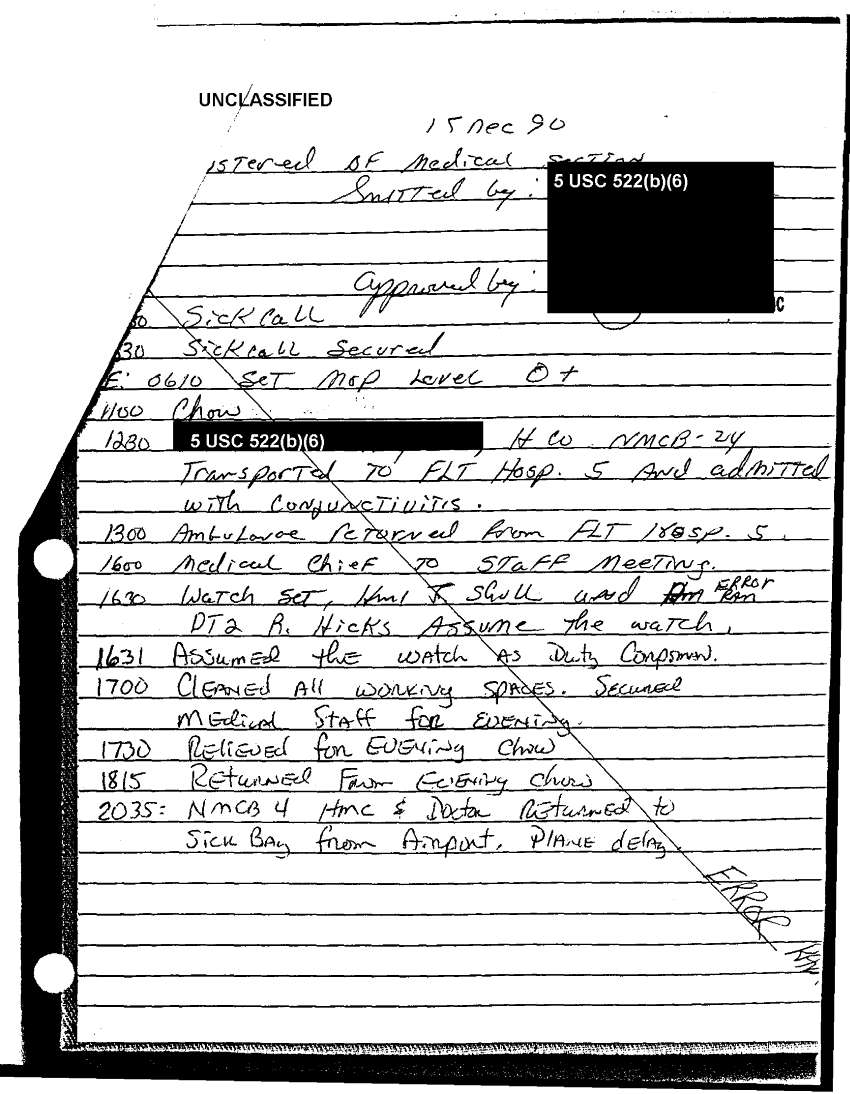 UNCLASSIFIED
15 Dec 90
istered OF Medical Section
Smitted by:
5 USC 522(b)(6)
Approved by:
Sick Call
30 Sickcall Secured
E: 0610 SeT MOP Level 0+
1100 Chow
5 USC 522(b)(6) H Co NMCB-24
Transported TO FLT Hosp. 5 And admitted
with Conjunctivitis.
1300 Ambulance returned from FLT Hosp. 5.
1600 Medical Chief TO STaff Meeting.
1630 Watch Set, Hm1 Scull and ERROR
DT2 R. Hicks Assume the watch,
1631 Assumed the watch as Duty Corpsman.
1700 Cleaned All working spaces. Secured
Medical Staff for Evening.
1730 Relieved for Evening Chow
1815 Returned From Evening chow
2035: NMCB 4 Hmc & Doctor Returned to
Sick Bay from Airport, Plane delay.
ERROR